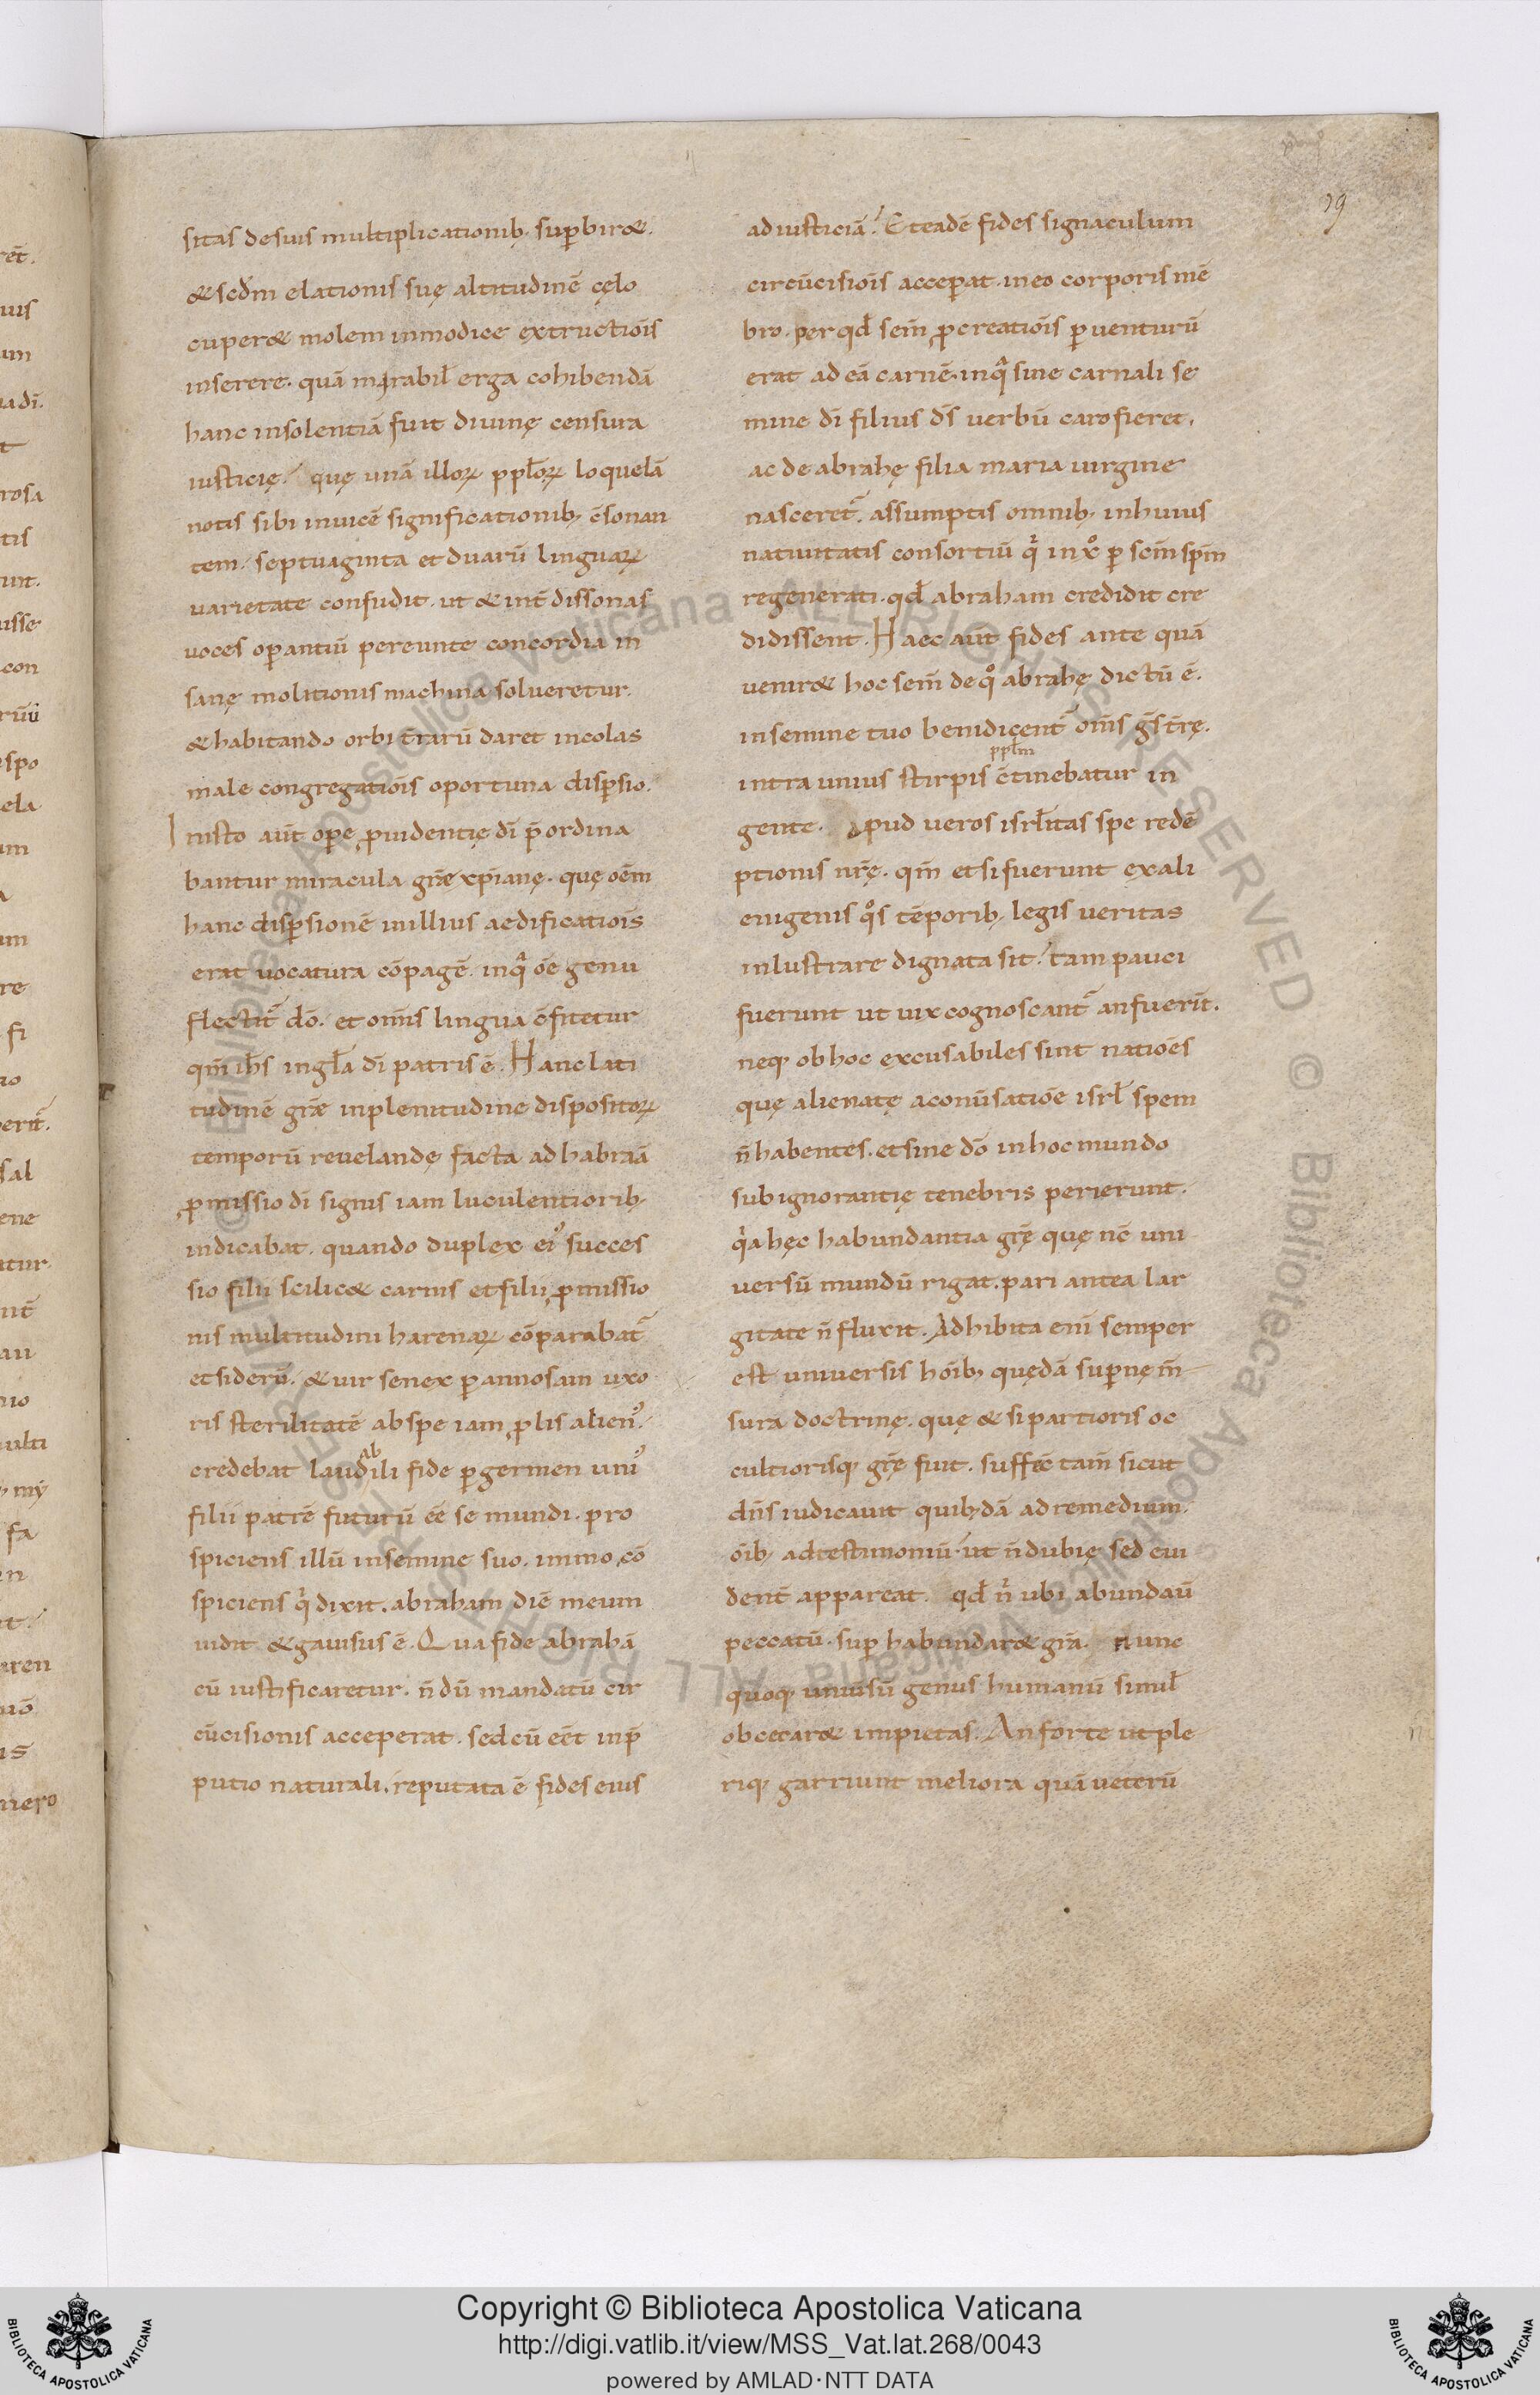 39
sitas desuis multiplicationib; suꝑbiret.
& scd̄m elationis suę altitudinē cęlo
cuper& molem inmodice extructiōis
inserere. quā mirabil̄ erga cohibendā
hanc insolentiā fuit diuinę censura
iusticię. quę unā illoꝝ ppl̄oꝝ loquelā
notis sibi inuicē significationib; c̄sonan
tem. septuaginta et duarū linguaꝝ
uarietate confudit. ut & int̄ dissonas
uoces oꝑantiū pereunte concordia in
sanę molitionis machina solueretur.
& habitando orbi t̄rarū daret incolas
male congregatiōis oportuna disꝑsio.
In isto aūt oꝑe ꝓuidentię dī p̄ordina
bantur miracula gr̄ę xp̄ianę. quę oēm
hanc disꝑsionē in illius aedificatiōis
erat uocatura cōpagē. inq̄ ōe genu
flectit̄ dō. et om̄is lingua c̄fitetur
qm̄ ih̄s ingl̄a dī patris ē. Hanc lati
tudinē gr̄ę inplenitudine dispositoꝝ
temporū reuelandę facta ad habraā
ꝓmissio dī signis iam luculentiorib;
indicabat. quando duplex ei᾿ succes
sio filii scilic& carnis et filii ꝓmissio
nis multitudini harenaꝝ cōparabat̄
et siderū. & uir senex ꝑ annosam uxo
ris sterilitatē ab spe iam ꝓlis alien᾿.
credebat laudabili fide ꝑ germen uni᾿
filii patrē futurū eē se mundi. pro
spiciens illū insemine suo. immo cō
spiciens q̇ dixit. abraham diē meum
uidit & gauisus ē. Qua fide abrahā
cū iustificaretur. n̄dū mandatū cir
cūcisionis acceperat. sed cū eēt inp̄
putio naturali. reputata ē fides eius
ad iusticiā. Et eadē fides signaculum
circūcisiōis acceꝑat. in eo corporis mē
bro. per qd̄ sem̄ ꝓcreatiōis ꝑuenturū
erat ad eā carnē. inq̄ sine carnali se
mine dī filius dś uerbū caro fieret.
ac de abrahę filia maria uirgine
nasceret̄. assumptis omnib; inhuius
natiuitatis consortiū q̇ in xo ꝑ scm̄ spm̄
regenerati. qd̄ abraham credidit cre
didissent. Haec aūt fides ante quā
uenir& hoc sem̄ de qo abrahę dictū ē.
insemine tuo benidicent̄ om̄s gs̄ t̄rę.
ppl̄m
intra unius stirpis c̄tinebatur in
gente. Apud ueros isrl̄itas spe redē
ptionis nr̄ę. qm̄ etsi fuerunt ex ali
enigenis qos tēporib; legis ueritas
inlustrare dignata sit. tam pauci
fuerunt ut uix cognoscant̄ an fuerīt.
neq; ob hoc excusabiles sint natiōes
quę alienatę aconūsatiōe isrl̄ spem
n̄ habentes. et sine dō inhoc mundo
sub ignorantię tenebris perierunt.
q̇a hęc habundantia gr̄ę quę nc̄ uni
uersū mundū rigat. pari antea lar
gitate n̄ fluxit. Adhibita enī semper
est uniuersis hōib; quędā suꝑnę m̄
sura doctrinę. quę & si partioris oc
cultiorisq; gr̄ę fuit. suffec̄ tam̄ sicut
dn̄s iudicauit quib;dā ad remedium.
ōib; ad testimoniū. ut n̄ dubię sed eui
dent̄ appareat. qd̄ n̄ ubi abundaū
peccatū. suꝑ habundar& gr̄a. nunc
quoq; uniūsū genus humanū simul̄
obcecar& impietas. An forte ut ple
riq; garriunt meliora quā ueterū
Copyright © Biblioteca Apostolica Vaticana
http://digi.vatlib.it/view/MSS_Vat.lat.268/0043
powered by AMLAD·NTT DATA